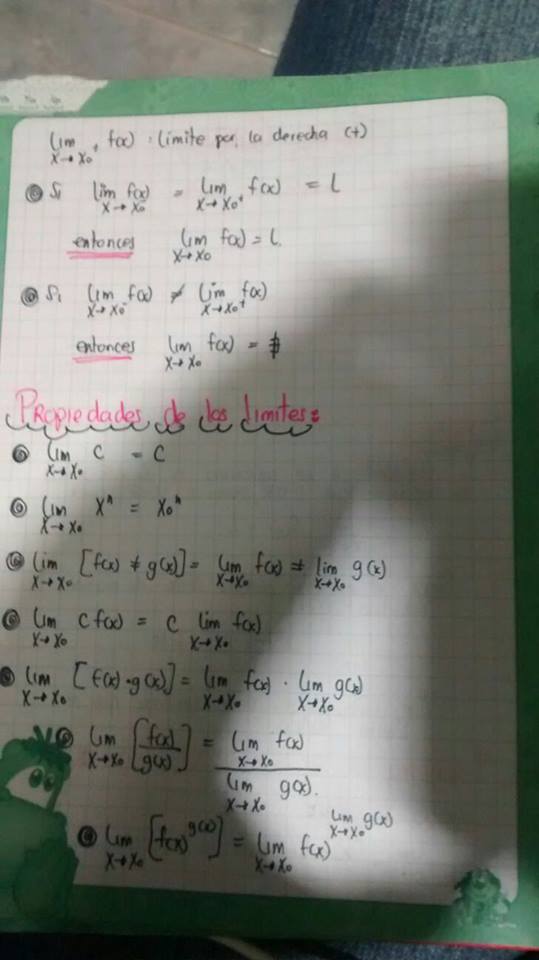 lim x→x₀⁺ f(x) : límite por la derecha (+)
Si lim x→x₀⁻ f(x) = lim x→x₀⁺ f(x) = L
entonces lim x→x₀ f(x) = L
Si lim x→x₀⁻ f(x) ≠ lim x→x₀⁺ f(x)
entonces lim x→x₀ f(x) = ∄
Propiedades de los limites:
lim x→x₀ C = C
lim x→x₀ xⁿ = x₀ⁿ
lim x→x₀ [f(x) ± g(x)] = lim x→x₀ f(x) ± lim x→x₀ g(x)
lim x→x₀ C f(x) = C lim x→x₀ f(x)
lim x→x₀ [f(x) · g(x)] = lim x→x₀ f(x) · lim x→x₀ g(x)
lim x→x₀ [f(x)/g(x)] = lim x→x₀ f(x) / lim x→x₀ g(x).
lim x→x₀ [f(x)^g(x)] = lim x→x₀ f(x)^(lim x→x₀ g(x))